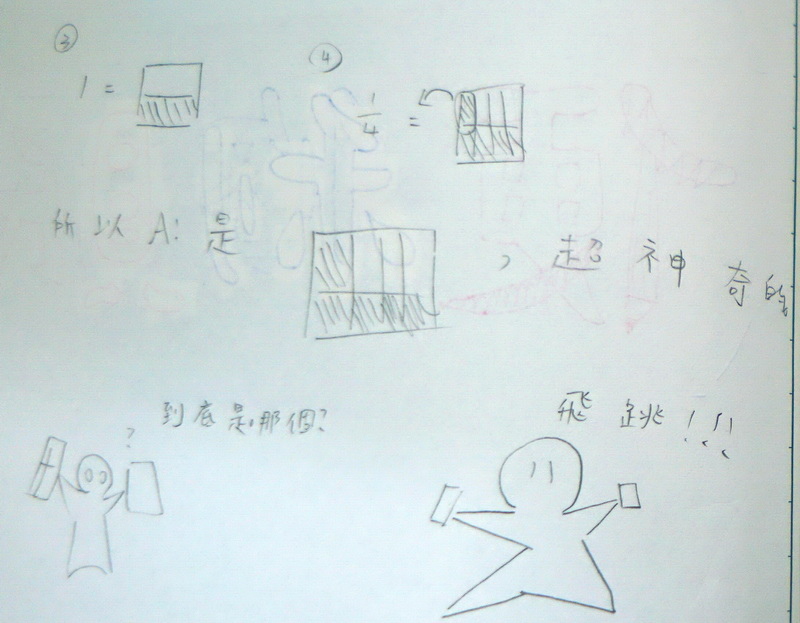 ③
1 =
④
1/4 =
所以 A: 是 , 超神奇的
到底是那個?
?
飛跳!!!